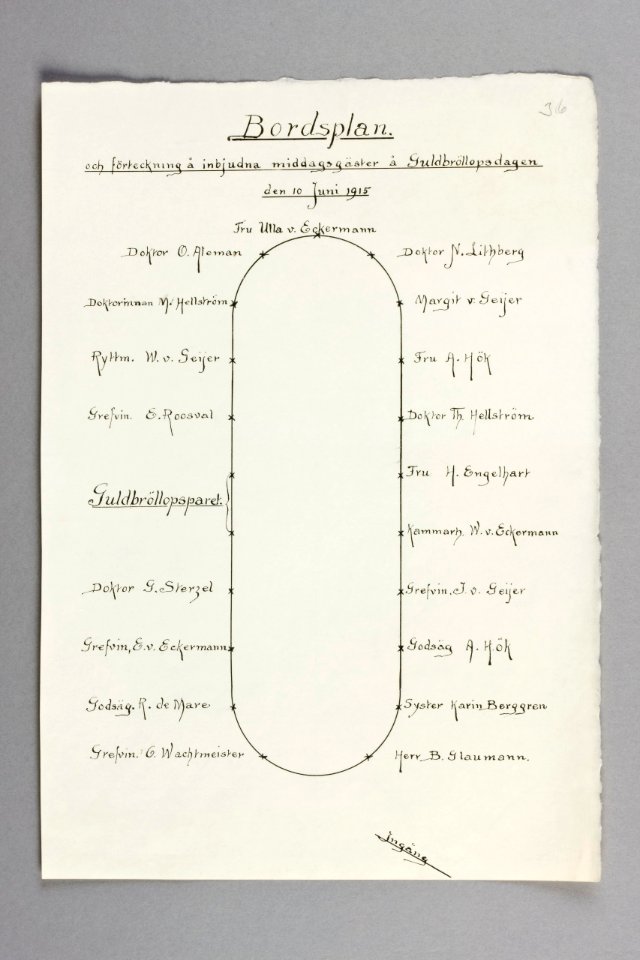 36
Bordsplan.
och förteckning å inbjudna middagsgäster å Guldbröllopsdagen
den 10 Juni 1915
Fru Ulla v. Eckermann
Doktor O. Aleman
Doktor N. Lithberg
Doktorinnan M. Hellström
Margit v. Geijer
Ryttm. W. v. Geijer
Fru A. Hök
Grefvin. E. Roosval
Doktor Th. Hellström
Fru H. Engelhart
Guldbröllopsparet.
Kammarh. W. v. Eckermann
Doktor G. Sterzel
Grefvin. J. v. Geijer
Grefvin, E. v. Eckermann
Godsäg A. Hök
Godsäg. R. de Mare
Syster Karin Berggren
Grefvin. C. Wachtmeister
Herr B. Glaumann.
Ingång